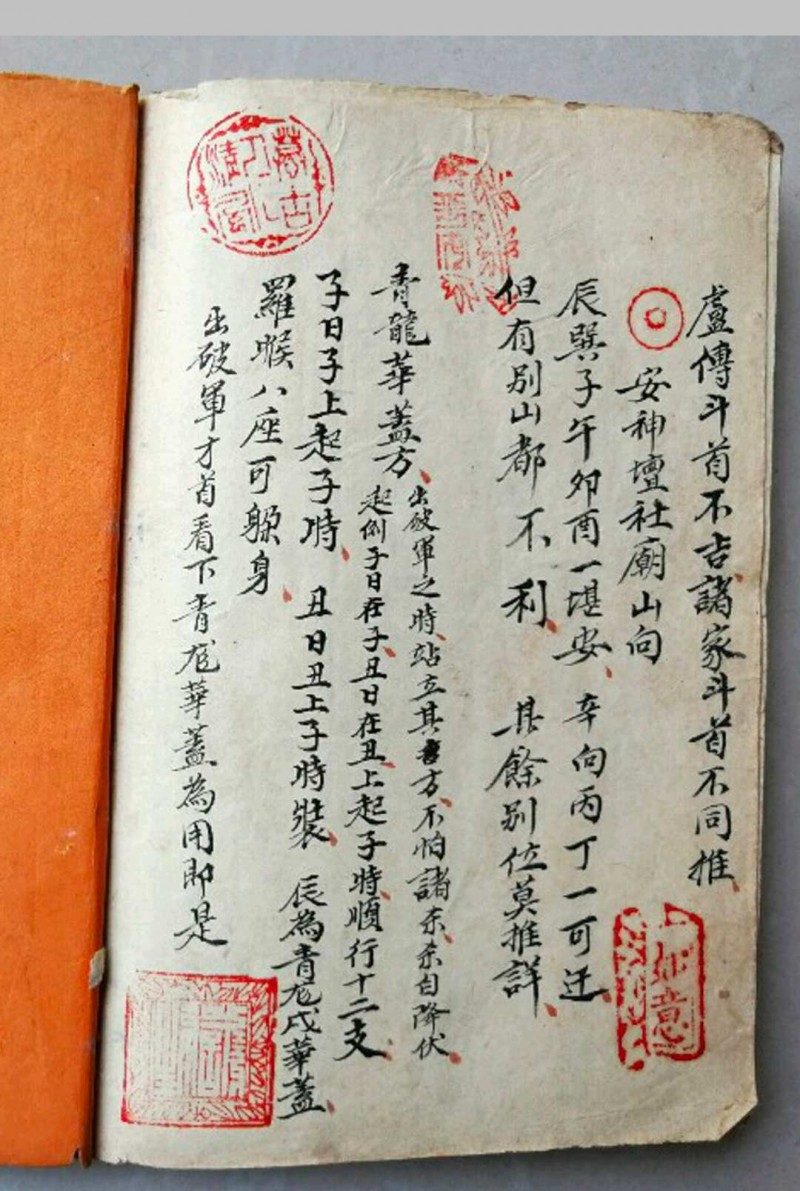 盧傳斗首不吉諸家斗首不同推
安神壇社廟山向
辰巽子午卯酉一堪安 辛向丙丁一可迁
但有别山都不利 其餘别位莫推詳
青龍華蓋方
出破軍之時站立其方不怕諸杀杀自降伏
起例子日在子丑日在丑上起子時順行十二支
子日子上起子時 丑日丑上子時裝 辰為青龙戌華蓋
羅睺八座可躲身
出破軍才首看下青龙華蓋為用即是
如意